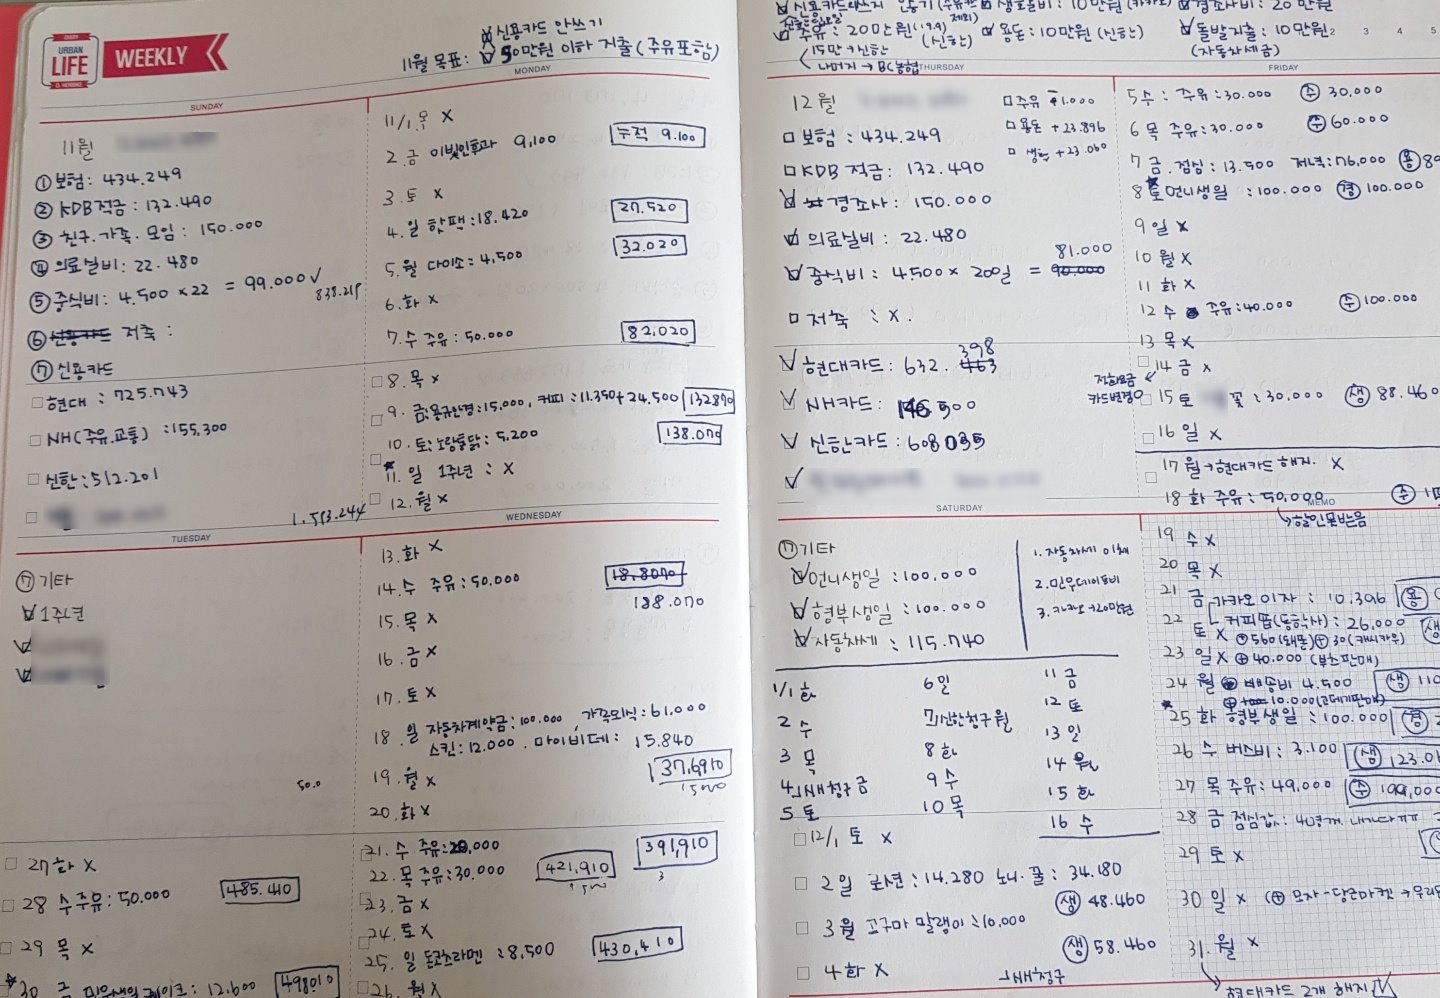 URBAN
LIFE
WEEKLY
신용카드 안쓰기
11월 목표: 50만원 이하 지출(주유포함)
SUNDAY
11월
① 보험: 434.249
② KDB적금: 132.490
③ 친구.가족.모임: 150.000
④ 의료실비: 22.480
⑤ 중식비: 4.500 x 22 = 99.000
838.219
⑥ 신용카드 저축:
⑦ 신용카드
현대: 725.743
NH(주유,교통): 155,300
신한: 512.201
MONDAY
11/1.목 x
2.금 9,100 누적 9.100
3.토 x
4.일 핫팩: 18.420 27.520
5.월 다이소: 4,500 32.020
6.화 x
7.수 주유: 50.000 82,020
8.목 x
9.금: 15,000, 커피: 11.350+24.500 132870
10.토: 노랑통닭: 5.200 138.070
11.일 1주년: x
12.월 x
TUESDAY
⑦ 기타
1주년
50.0
27 화 x
28 수 주유: 50.000 485.410
29 목 x
30 금 12,600 498010
WEDNESDAY
13.화 x
14.수 주유: 50.000 18,8070
188.070
15.목 x
16.금 x
17.토 x
18.일 자동차계약금: 100.000, 가족외식: 61,000
스킨: 12.000. 마이비데: 15.840
19.월 x 376910
20.화 x
21.수 주유: 20,000 391,910
22.목 주유: 30.000 421,910
23.금 x
24.토 x
25.일 돈코츠라멘: 8,500 430,410
26.월 x
생활비: 10만원 경조사비: 20만원
주유: 20만원 (신한) 용돈: 10만원 (신한) 돌발지출: 10만원
15만→신한 (자동차세금)
나머지 → BC농협
2 3 4 5
THURSDAY
12월
보험: 434.249
KDB적금: 132.490
경조사: 150.000
의료실비: 22.480
중식비: 4.500 x 20일 = 90.000
81.000
저축: x.
현대카드: 632.463
398
NH카드: 146 500
신한카드: 608 035
주유 1.000
용돈 +23.896
생활 +23.060
FRIDAY
5수: 주유: 30.000 주 30.000
6 목 주유: 30.000 주 60.000
7 금.점심: 13.500 저녁: 76,000 용
8 토 언니생일: 100.000 경 100.000
9 일 x
10 월 x
11 화 x
12 수 주유: 40.000 주 100.000
13 목 x
14 금 x
전화요금
카드변경
15 토 꽃: 30,000 생 88.460
16 일 x
17 월→현대카드 해지. x
18 화 주유: 50,000 주
→할인못받음
SATURDAY
⑦ 기타
언니생일: 100.000
형부생일: 100.000
자동차세: 115.740
1. 자동차세 이체
2.
3.
1/1 화
2 수
3 목
4 NH청구 금
5 토
6 일
7 신한청구 월
8 화
9 수
10 목
11 금
12 토
13 일
14 월
15 화
16 수
12/1 토 x
2 일 로션: 14.280 34.180
생 48.460
3월 고구마 말랭이: 10,000
생 58.460
4 화 x
NH청구
MEMO
19 수 x
20 목 x
21 금 카카오 이자: 10.396 용
22 토 x 26,000 생
23 일 x ⊕ 40.000 (부츠판매)
24 월 배송비 4.500 생 110
25 화 형부생일: 100.000 경
26 수 버스비: 3.100 생 123.0
27 목 주유: 49,000 주 199,000
28 금 점심값: 40
29 토 x
30 일 x
31.월 x
현대카드 2개 해지